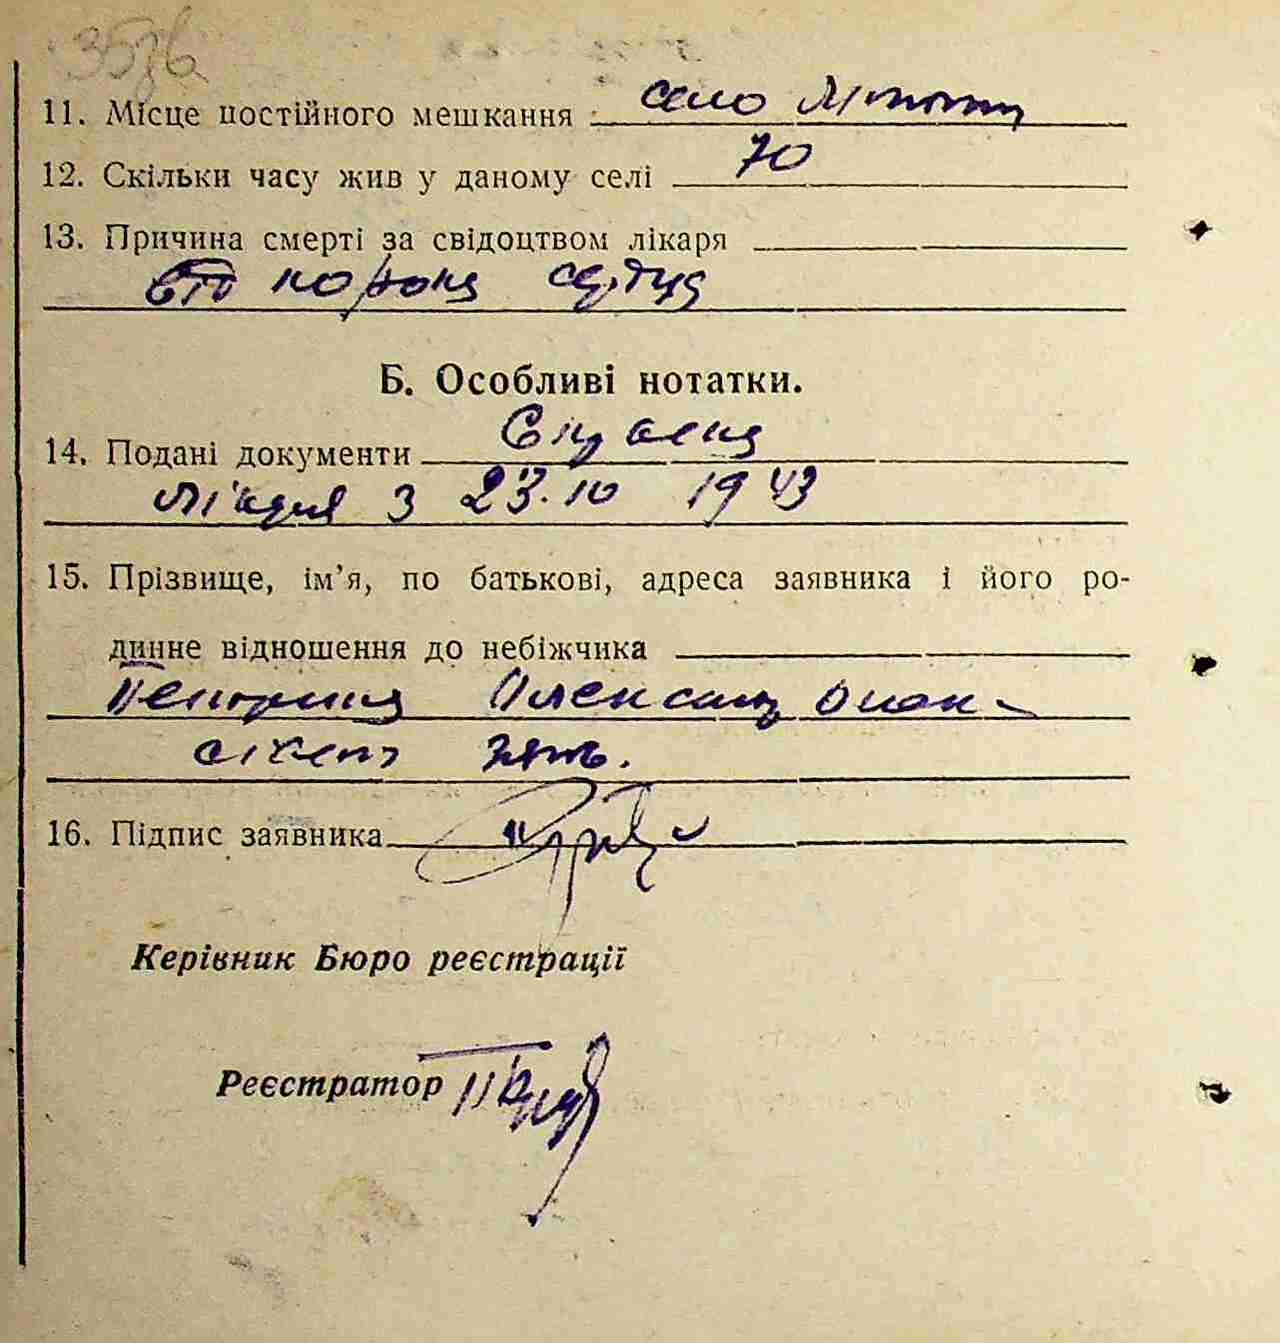 357б
11. Місце постійного мешкання село
12. Скільки часу жив у даному селі 70
13. Причина смерті за свідоцтвом лікаря
від порока сердця
Б. Особливі нотатки.
14. Подані документи
з 23.10 1943
15. Прізвище, ім’я, по батькові, адреса заявника і його ро-
динне відношення до небіжчика
Олександ Опан-
зять.
16. Підпис заявника
Керівник Бюро реєстрації
Реєстратор